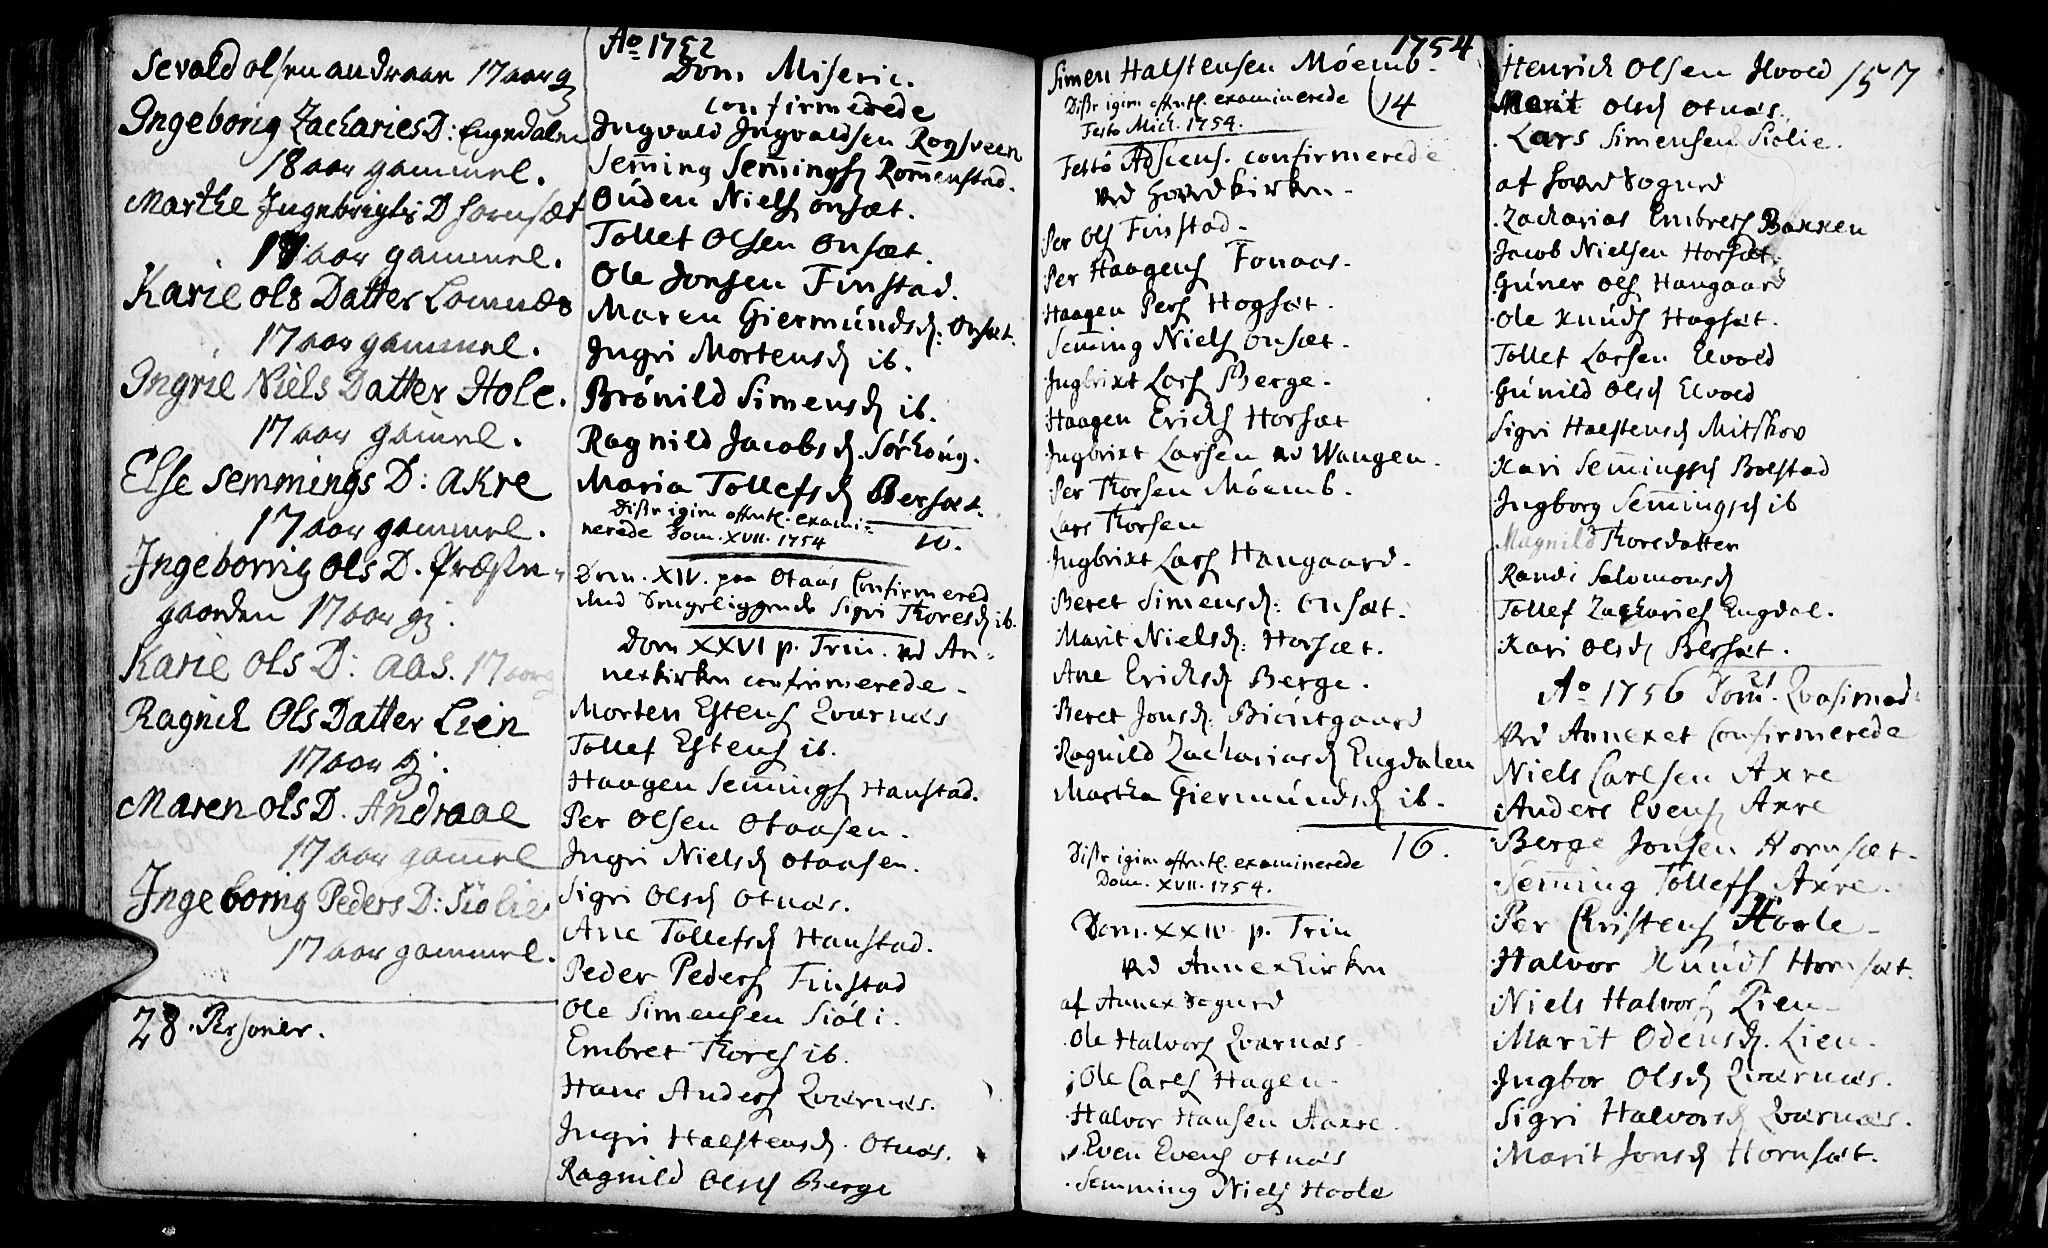 Sevald olsen andraae 17 aar g
Ingeborig Zacharies D: Engedalen
18 aar gammel.
Marthe Ingebrigts D Hornsæt
17 aar gammel.
Karie ols Datter Lomnæs
17 aar gammel.
Ingrie Niels Datter Hole.
17 aar gamel.
Else Semmings D: Akre
17 aar gammel.
Ingeborrig Ols D. Præste-
gaarden 17 aar g.
Karie Ols D: Aas. 17 aar g
Ragnil Ols Datter Lien
17 aar g.
Maren Ols D. Andraae
17 aar gammel
Ingeborrig Peders D: Siölie
17 aar gammel.
28. Personer.
Ao 1752
Dom Miseric.
confirmerede
Ingvald Ingvaldsen Rogsveen
Seming Semings Romenstad.
Ouden Niels Onsæt.
Tollef Olsen Onsæt.
Ole Jonsen Finstad.
Maren Giermunds D: Onsæt.
Ingri Mortens D ib.
Brönild Simens D ib.
Ragnild Jacobs D. Sörhoug.
Maria Tollefs D Bersæt.
Disse igien offentl. exami-
nerede Dom. XVII. 1754
10.
Dom. XIV. paa Otaas Confirmered
den Sengeliggende Sigri Thores D ib.
Dom XXVI p. Trin. ved An-
nexkirken confirmerede -
Morten Estens Qværnæs
Tollef Estens ib.
Haagen Semings Hanstad.
Per Olsen Otaasen.
Ingri Niels D Otaasen.
Sigri Ols D Otnæs.
Ane Tollefs D Hanstad.
Peder Peders Finstad
Ole Simensen Siöli.
Embret Thores ib.
Hans Anders Qværnæs.
Ingri Halstens D. Otnæs.
Ragnild Ols D Berge
1754
Simen Halstensen Möemb.
Disse igien offentl. examinerede
Festo Mich. 1754.
14
Festo Adscens. confirmerede
ved Hovedkirken -
Per Ols Finstad -
Per Haagens Fonaas -
Haagen Pers Hogsæt.
Seming Niels Onsæt -
Ingbrixt Lars Berge -
Haagen Ericks Horsæt
Ingbrixt Larsen ved Wangen.
Per Thorsen Möemb.
Lars Thorsen
Ingbrixt Lars Haugaard -
Beret Simens D: Onsæt.
Marit Niels D: Horsæt.
Ane Ericks D Berge.
Beret Jons D: Biöntgaard
Ragnild Zacharias D Engdalen
Martha Giermunds D ib.
16.
Disse igien offentl. examinerede
Dom. XVII. 1754.
Dom. XXIV p. Trin
ved Annexkirken
af Annex Sogned
Ole Halvors Qværnæs
Ole Carls Hagen
Halvor Hansen Aaxre
Even Evens Otnæs
Semming Niels Hoole
157
Henrich Olsen Elvold
Marit Ols D Otnæs.
Lars Simensen Siölie.
af Hoved Sogned
Zacharias Embrets Baxxen
Jacob Nielsen Horsæt.
Guner Ols Haugaard
Ole Knuds Hogsæt.
Tollef Larsen Elvold
Gunild Ols D Elvold
Sigri Halstens D Mitskov
Kari Semings D Bolstad
Ingborg Semings D ib
Magnild Thoresdatter
Randi Salomons D
Tollef Zacharies Engdal.
Kari Ols D Bersæt.
Ao 1756 Dom. Qvasimod.
ved Annexet confirmerede
Niels Carlsen Axre
Anders Evens Axre
Berge Jonsen Hornsæt.
Seming Tollefs Axre.
Per Christens Hoole -
Halvor Knuds Hornsæt.
Niels Halvors Lien
Marit Odens D. Lien.
Ingbor Ols D Qværnæs.
Sigri Halvors D Qværnæs.
Marit Jons D Hornsæt.